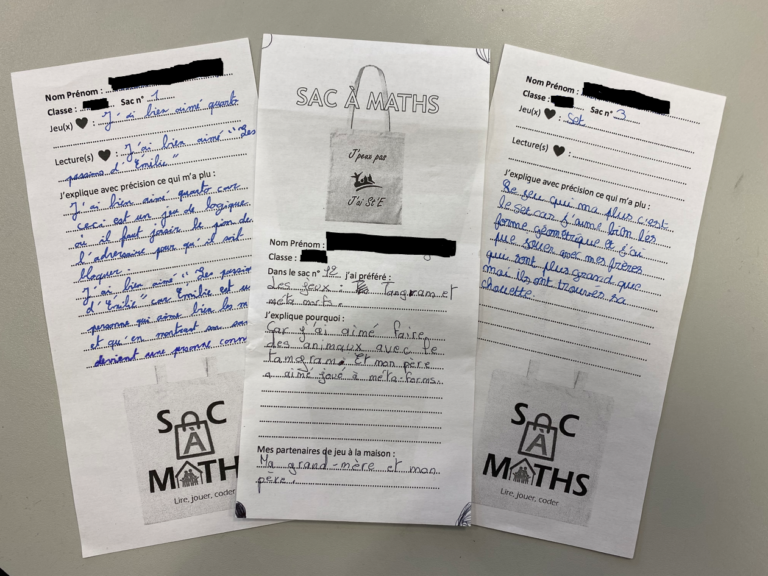 Nom Prénom :
Classe : Sac n° 1
Jeu(x) : J'ai bien aimé quarto
Lecture(s) : J'ai bien aimé "Les
passions d'Émilie"
J'explique avec précision ce qui m'a plu :
J'ai bien aimé quarto car
ceci est un jeu de logique
où il faut forcer le pion de
l'adversaire pour qu'il soit
bloquer.
J'ai bien aimé "Les passions
d'Émilie" car Émilie est une
personne qui aime bien les m
et qu'en montrant son
devient une personne conn
SAC À MATHS
Lire, jouer, coder
SAC À MATHS
J'peux pas
J'ai St'E
Nom Prénom :
Classe :
Dans le sac n° 12 j'ai préféré :
Les jeux : Tangram et
méta-forms.
J'explique pourquoi :
Car j'ai aimé faire
des animaux avec le
tamgram. Et mon père
a aimé joué à méta-forms.
Mes partenaires de jeu à la maison :
Ma grand-mère et mon
père.
Nom Prénom :
Classe : Sac n° 3
Jeu(x) : Set
Lecture(s) :
J'explique avec précision ce qui m'a plu :
Le jeu qui ma plus c'est
le set car j'aime bien les
forme géométrique et j'ai
pue jouer avec mes frères
que sont plus grand que
mai ils ont trouvés sa
chouette.
SAC À MATHS
Lire, jouer, coder